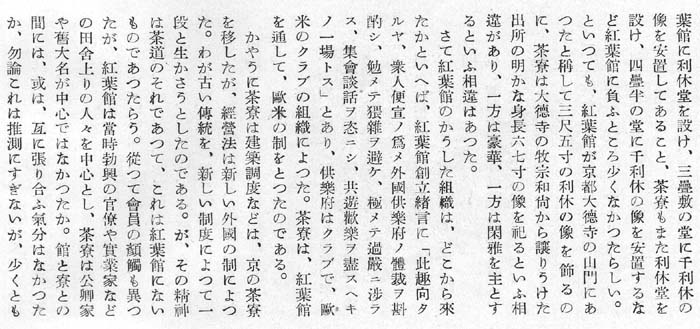 葉館に利休堂を設け、三疊敷の堂に千利休の
像を安置してあること、茶寮もまた利休堂を
設け、四疊半の堂に千利休の像を安置するな
ど紅葉館に負ふところ少くなかつたらしい。
といつても、紅葉館が京都大德寺の山門にあ
つたと稱して三尺五寸の利休の像を飾るの
に、茶寮は大德寺の牧宗和尙から讓りうけた
出所の明かな身長六七寸の像を祀るといふ相
違があり、一方は豪華、一方は閑雅を主とす
るといふ相違はあつた。
さて紅葉館のかうした組織は、どこから來
たかといへば、紅葉館創立緖言に「此趣向タ
ルヤ、衆人便宜ノ爲メ外國倶樂府ノ體裁ヲ斟
酌シ、勉メテ猥雜ヲ避ケ、極メテ過嚴ニ涉ラ
ス、集會談話ヲ恣ニシ、共遊歡樂ヲ盡スヘキ
ノ一場トス」とあり、倶樂府はクラブで、歐
米のクラブの組織によつた。茶寮は、紅葉館
を通して、歐米の制をとつたのである。
かやうに茶寮は建築調度などは、京の茶寮
を移したが、經營法は新しい外國の制によつ
た。わが古い傳統を、新しい制度によつて一
段と生かさうとしたのである。が、その精神
は茶道のそれであつて、これは紅葉館にない
ものであつたらう。從つて會員の顏觸も異つ
たが、紅葉館は當時勃興の官僚や實業家など
の田舍上りの人々を中心とし、茶寮は公卿家
や舊大名が中心ではなかつたか。館と寮との
間には、或は、互に張り合ふ氣分はなかつた
か、勿論これは推測にすぎないが、少くとも